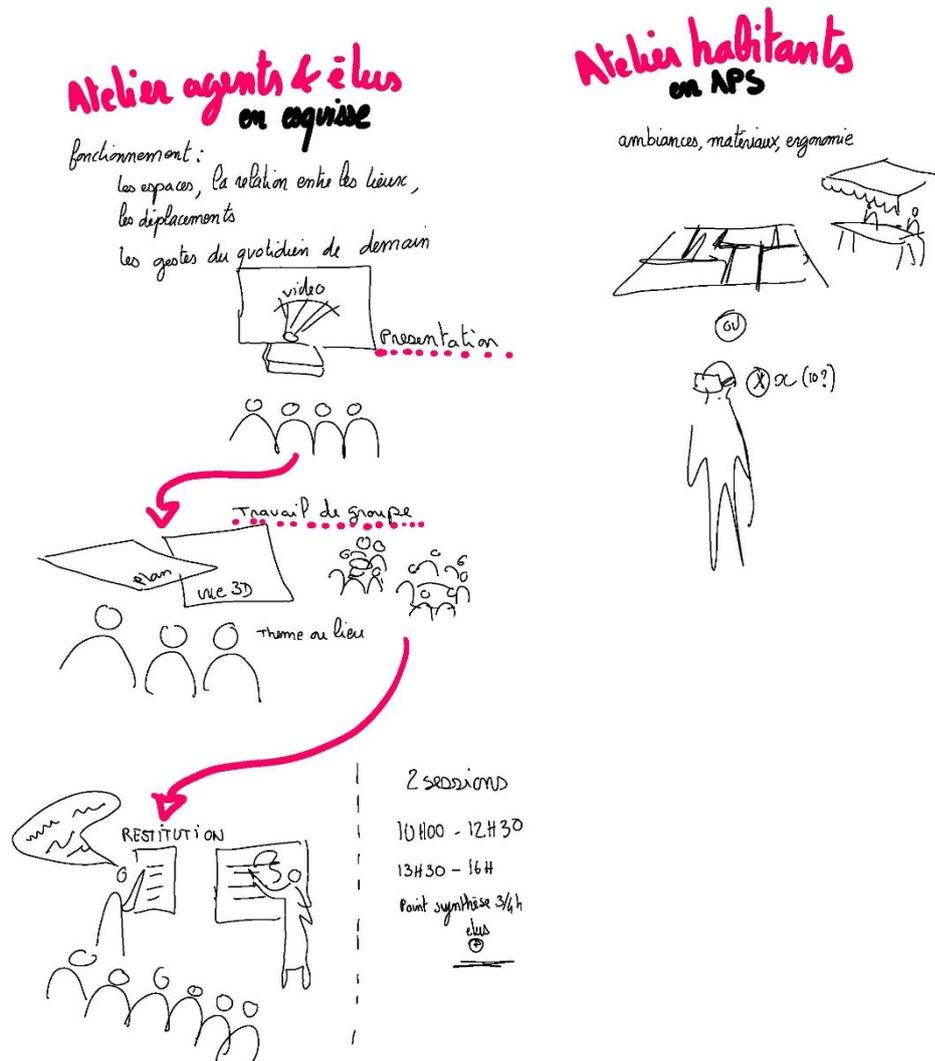 Atelier agents & élus
en esquisse
fonctionnement :
les espaces, la relation entre les lieux,
les déplacements
les gestes du quotidien de demain
video
Presentation
Travail de groupe
plan
vue 3D
Theme ou lieu
RESTITUTION
2 sessions
10H00 - 12H30
13H30 - 16H
Point synthèse 3/4h
élus
+
Atelier habitants
en APS
ambiances, matériaux, ergonomie
ou
X x (10?)